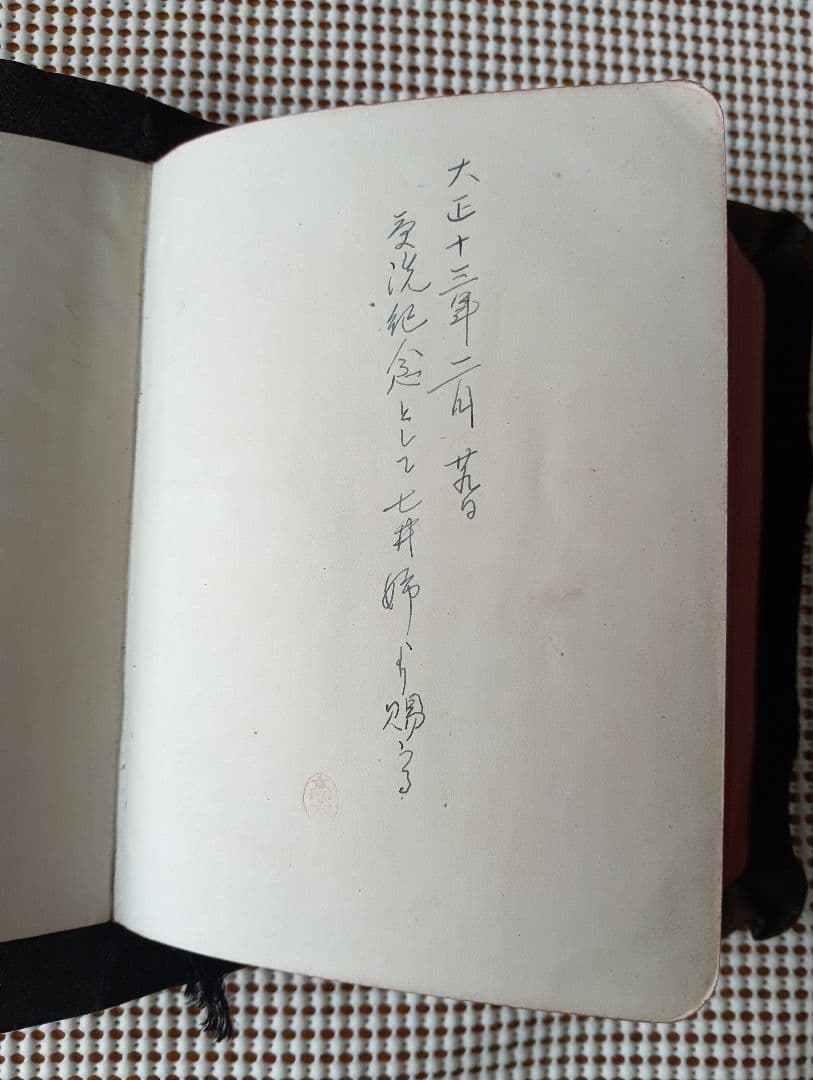 大正十三年二月廿九日
受洗紀念として七井姉より賜はる